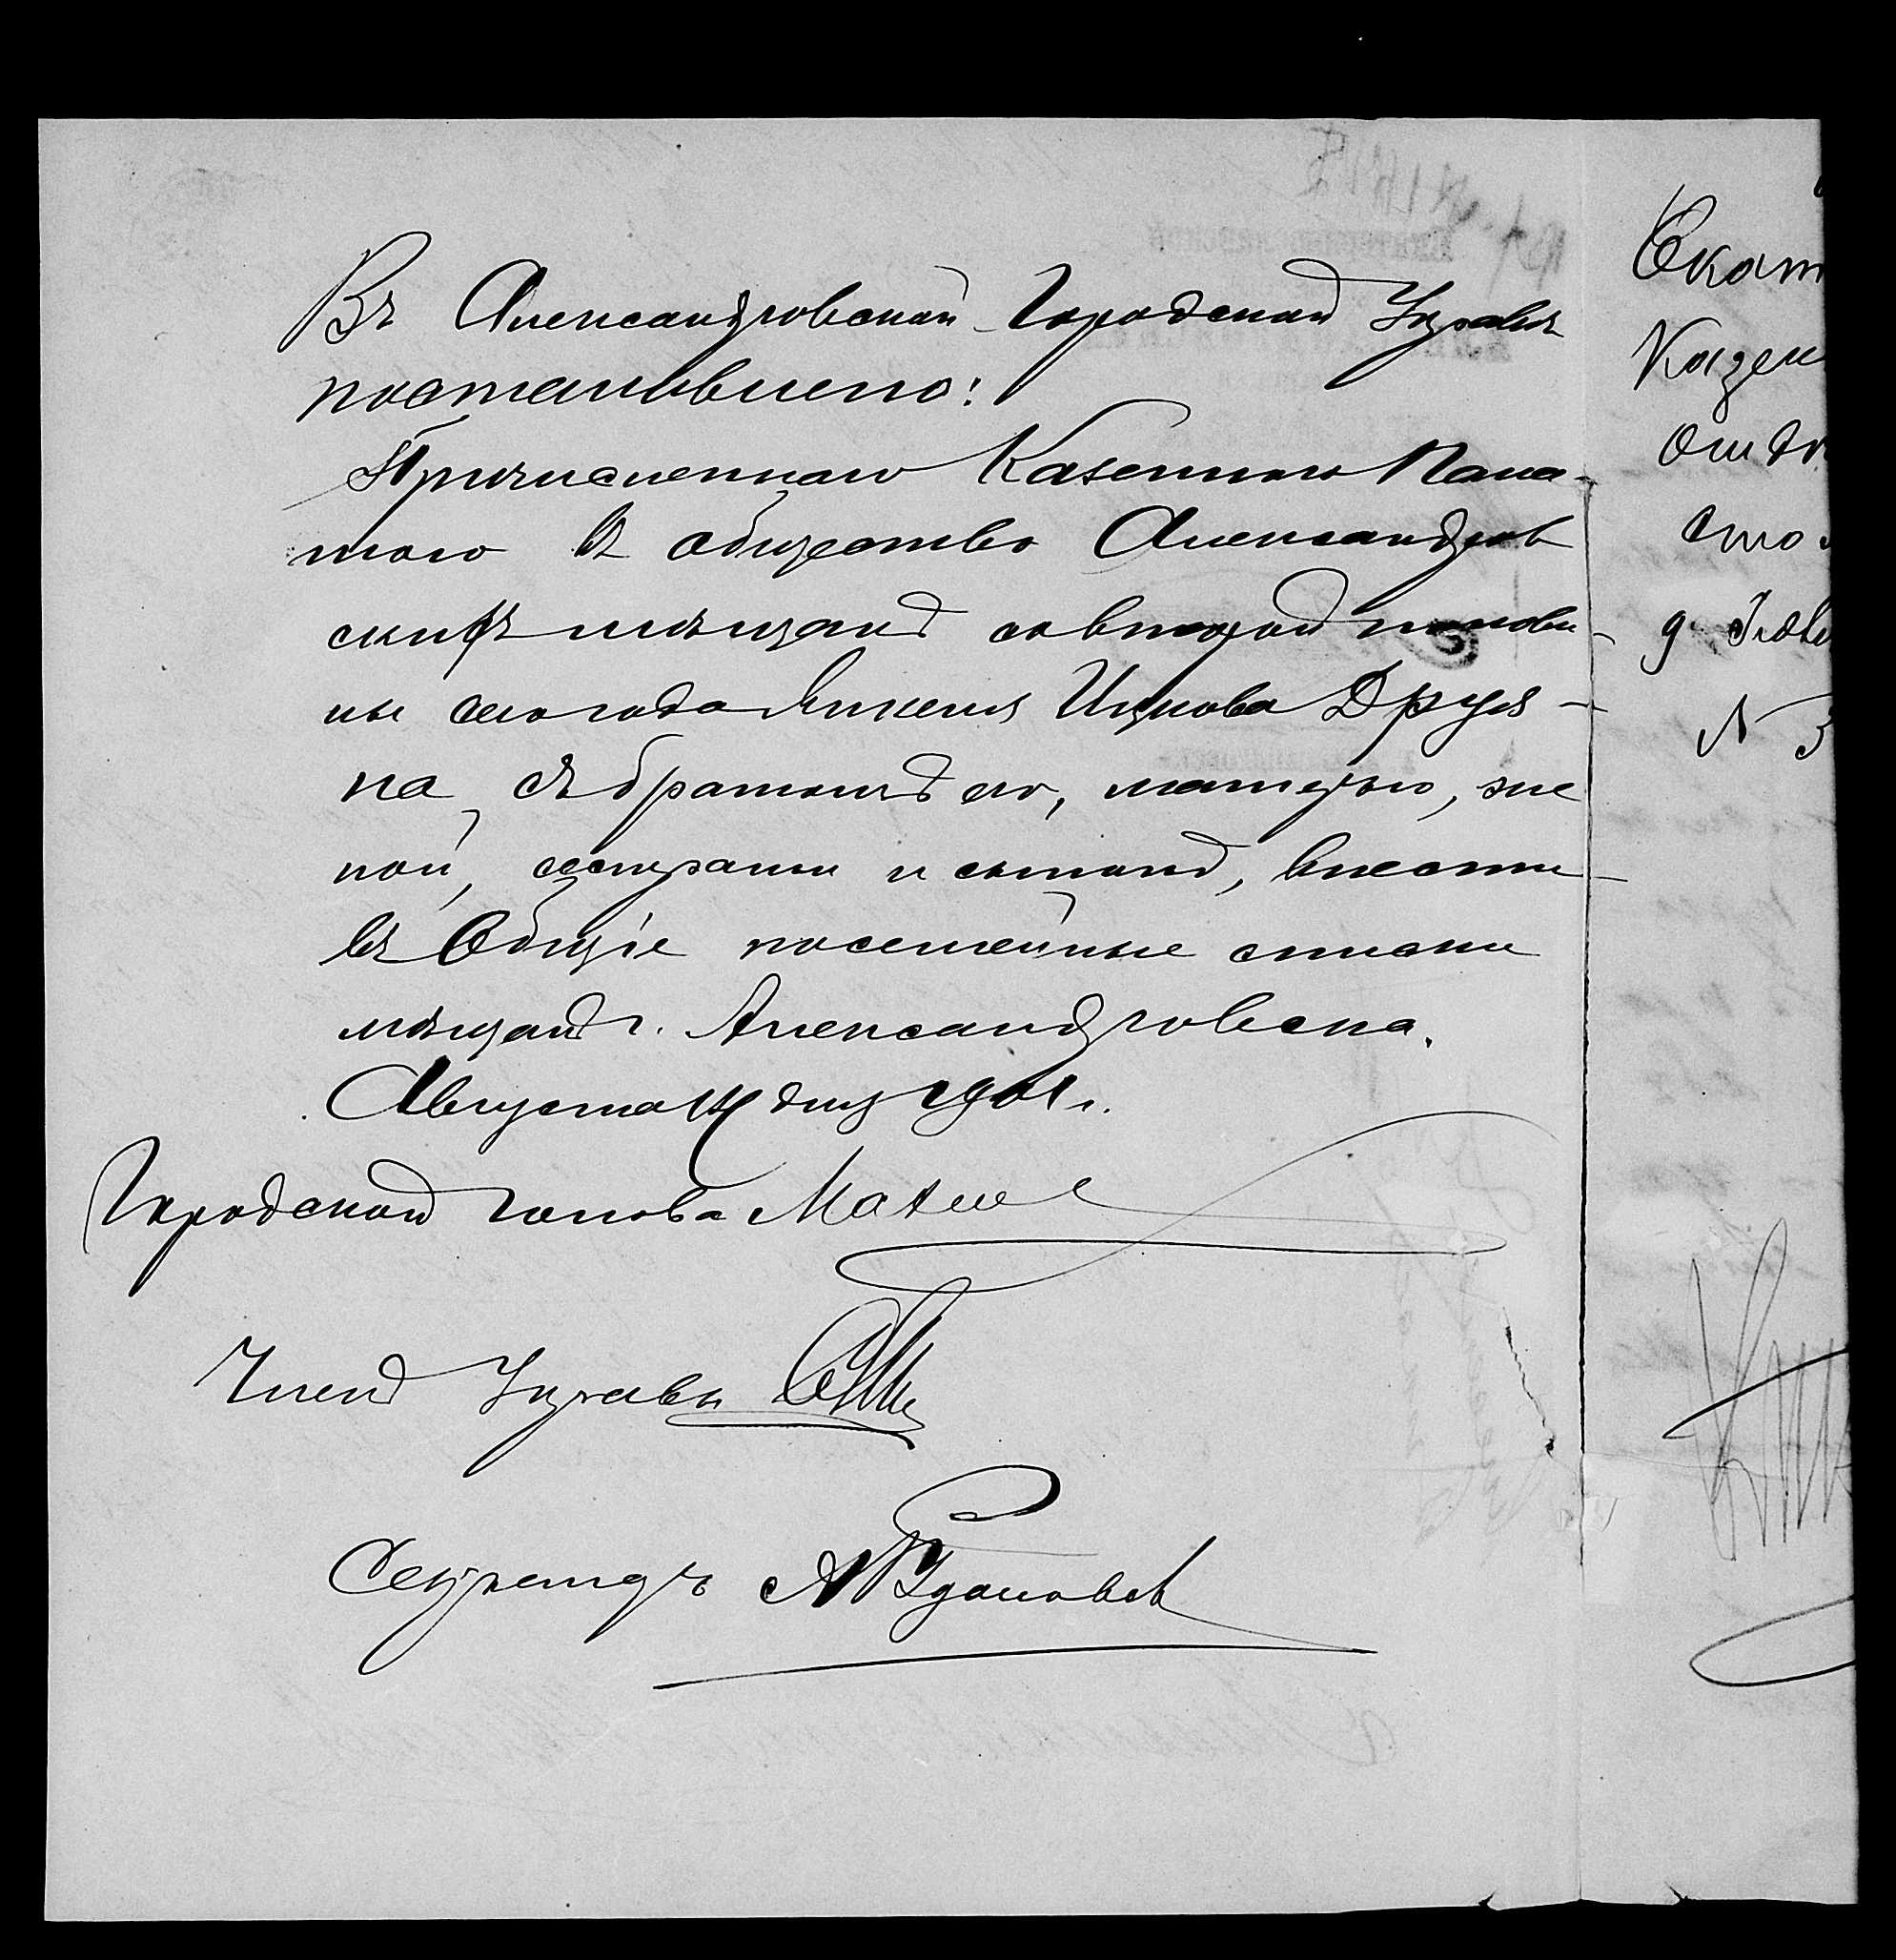 Въ Александровской Городской Управѣ
постановлено:
Причисленнаго Казенною Пала-
тою въ общество Александров
скихъ мѣщанъ со второй полови-
ны сего года Янкеля Ицкова Друя-
на, съ братомъ его, матерью, же
ной, сестрами и сыномъ, внести
въ Общіе посемейные списки
мѣщанъ г. Александровска.
Августа дня 1901 г.
Городской голова
Членъ Управы
Секретарь
Екат
Казен
Отдѣ
сто
N 3